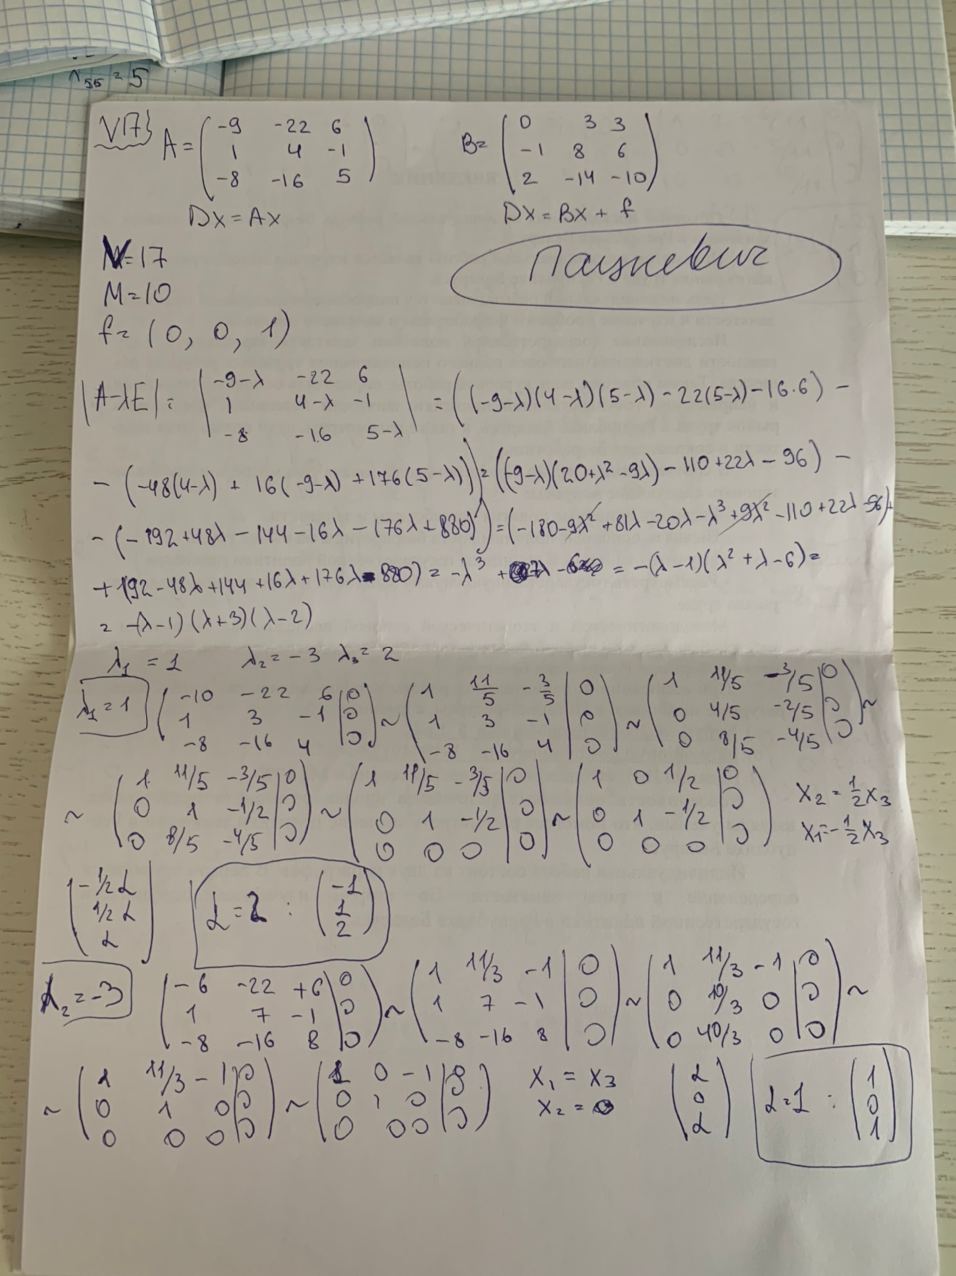 λ₅₅ = 5
V17} A = (-9 -22 6; 1 4 -1; -8 -16 5) B = (0 3 3; -1 8 6; 2 -14 -10)
DX = AX DX = BX + f
N = 17
M = 10
f = (0, 0, 1)
|A-λE| = |-9-λ -22 6; 1 4-λ -1; -8 -16 5-λ| = ((-9-λ)(4-λ)(5-λ) - 22(5-λ) - 16·6) -
- (-48(4-λ) + 16(-9-λ) + 176(5-λ)) = ((-9-λ)(20+λ²-9λ) - 110 + 22λ - 96) -
- (-192+48λ - 144 - 16λ - 176λ + 880) = (-180 - 9λ² + 81λ - 20λ - λ³ + 9λ² - 110 + 22λ - 96) +
+ (192 - 48λ + 144 + 16λ + 176λ - 880) = -λ³ + = -(λ-1)(λ²+λ-6) =
= -(λ-1)(λ+3)(λ-2)
λ₁ = 1 λ₂ = -3 λ₃ = 2
λ₁ = 1 (-10 -22 6 | 0; 1 3 -1 | 0; -8 -16 4 | 0) ~ (1 11/5 -3/5 | 0; 1 3 -1 | 0; -8 -16 4 | 0) ~ (1 11/5 -3/5 | 0; 0 4/5 -2/5 | 0; 0 8/5 -4/5 | 0) ~
~ (1 11/5 -3/5 | 0; 0 1 -1/2 | 0; 0 8/5 -4/5 | 0) ~ (1 11/5 -3/5 | 0; 0 1 -1/2 | 0; 0 0 0 | 0) ~ (1 0 1/2 | 0; 0 1 -1/2 | 0; 0 0 0 | 0) X₂ = 1/2 X₃
X₁ = -1/2 X₃
(-1/2 α; 1/2 α; α) α = 2 : (-1; 1; 2)
λ₂ = -3 (-6 -22 +6 | 0; 1 7 -1 | 0; -8 -16 8 | 0) ~ (1 11/3 -1 | 0; 1 7 -1 | 0; -8 -16 8 | 0) ~ (1 11/3 -1 | 0; 0 10/3 0 | 0; 0 40/3 0 | 0) ~
~ (1 11/3 -1 | 0; 0 1 0 | 0; 0 0 0 | 0) ~ (1 0 -1 | 0; 0 1 0 | 0; 0 0 0 | 0) X₁ = X₃
X₂ = 0 (α; 0; α) α = 1 : (1; 0; 1)